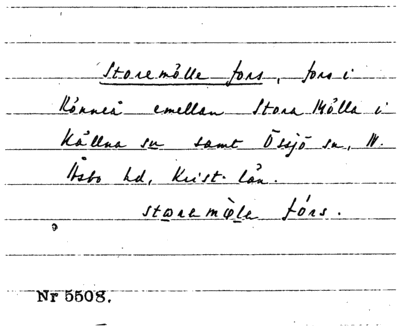 Storemölle fors, fors i
Rönneå emellan Stora Mölla i
Källna sn samt Össjö sn, N.
Åsbo hd, Krist. län.
Nr 5508.